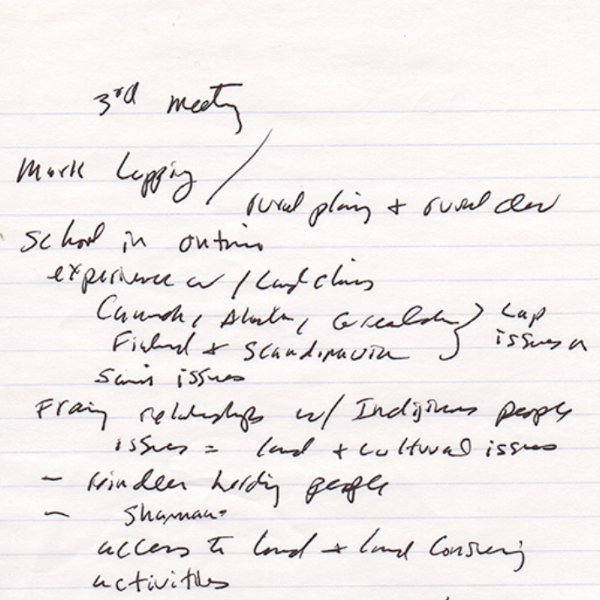 3rd meeting
Mark Lapping /
rural planing + rural dev
School in Ontario
experience w/ land claims
Canada, Alaska, Greenland
Finland & Scandinavia } Lap issues
Sami issues
relationships w/ Indigenous people
issues = land + cultural issues
- reindeer herding people
- Shaman
access to land + land
activities